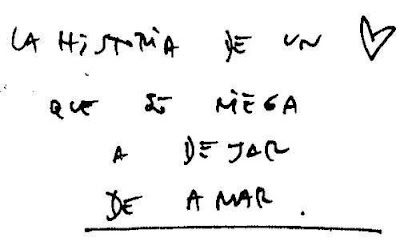 LA HISTORIA DE UN ♡
QUE SE NIEGA
A DEJAR
DE AMAR.